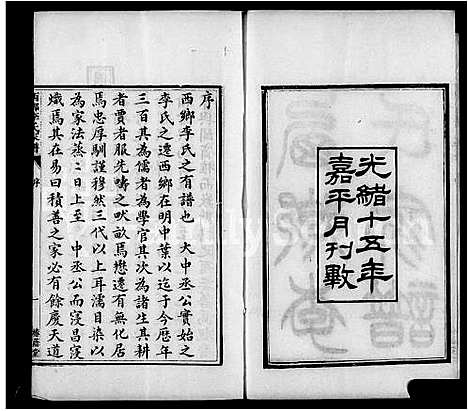 光緒十五年
嘉平月刊數
序
西鄉李氏之有譜也 大中丞公實始之
李氏之遷西鄉在明中葉以迄于今歷年
三百其為儒者為學官其次為諸生其耕
者賈者服先疇之畎畝焉懋遷有無化居
焉忠厚馴謹穆然三代以上耳濡目染以
為家法蒸二日上至 中丞公而寖昌寖
熾焉其在易曰積善之家必有餘慶天道
序
一